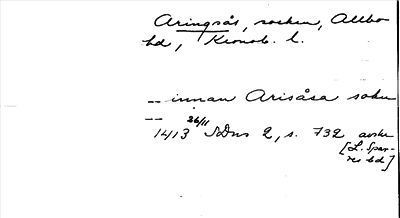 Aringsås, socken, Allbo
hd, Kronob. l.
-- innan Arisåsa sokn
--
26/11
1413 SDns 2, s. 732 avskr
[L. Spar-
res bd]